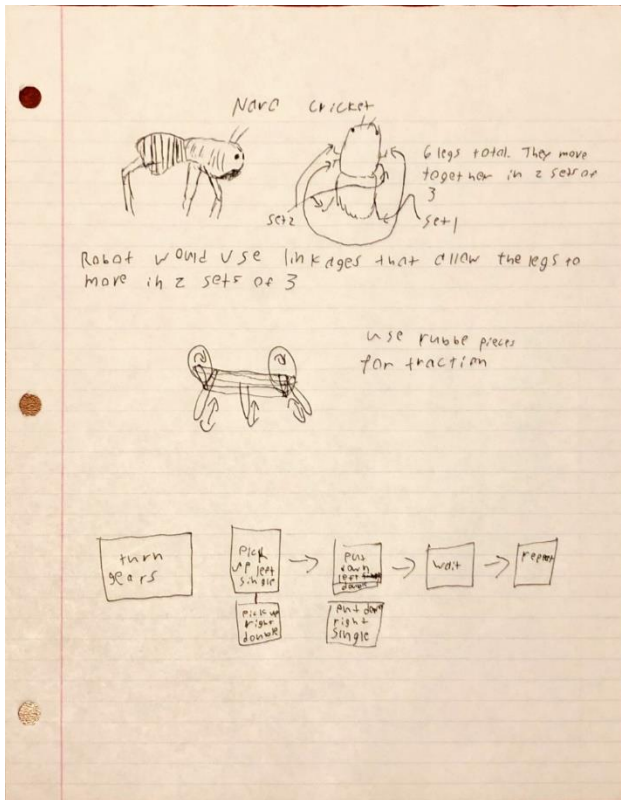 Nara cricket
6 legs total. They move
together in 2 sets of
3
set2
set1
Robot would use linkages that allow the legs to
move in 2 sets of 3
use rubbe pieces
for traction
turn
gears
pick
up left
single
pick up
right
double
put
down
left
double
put down
right
single
wait
repeat